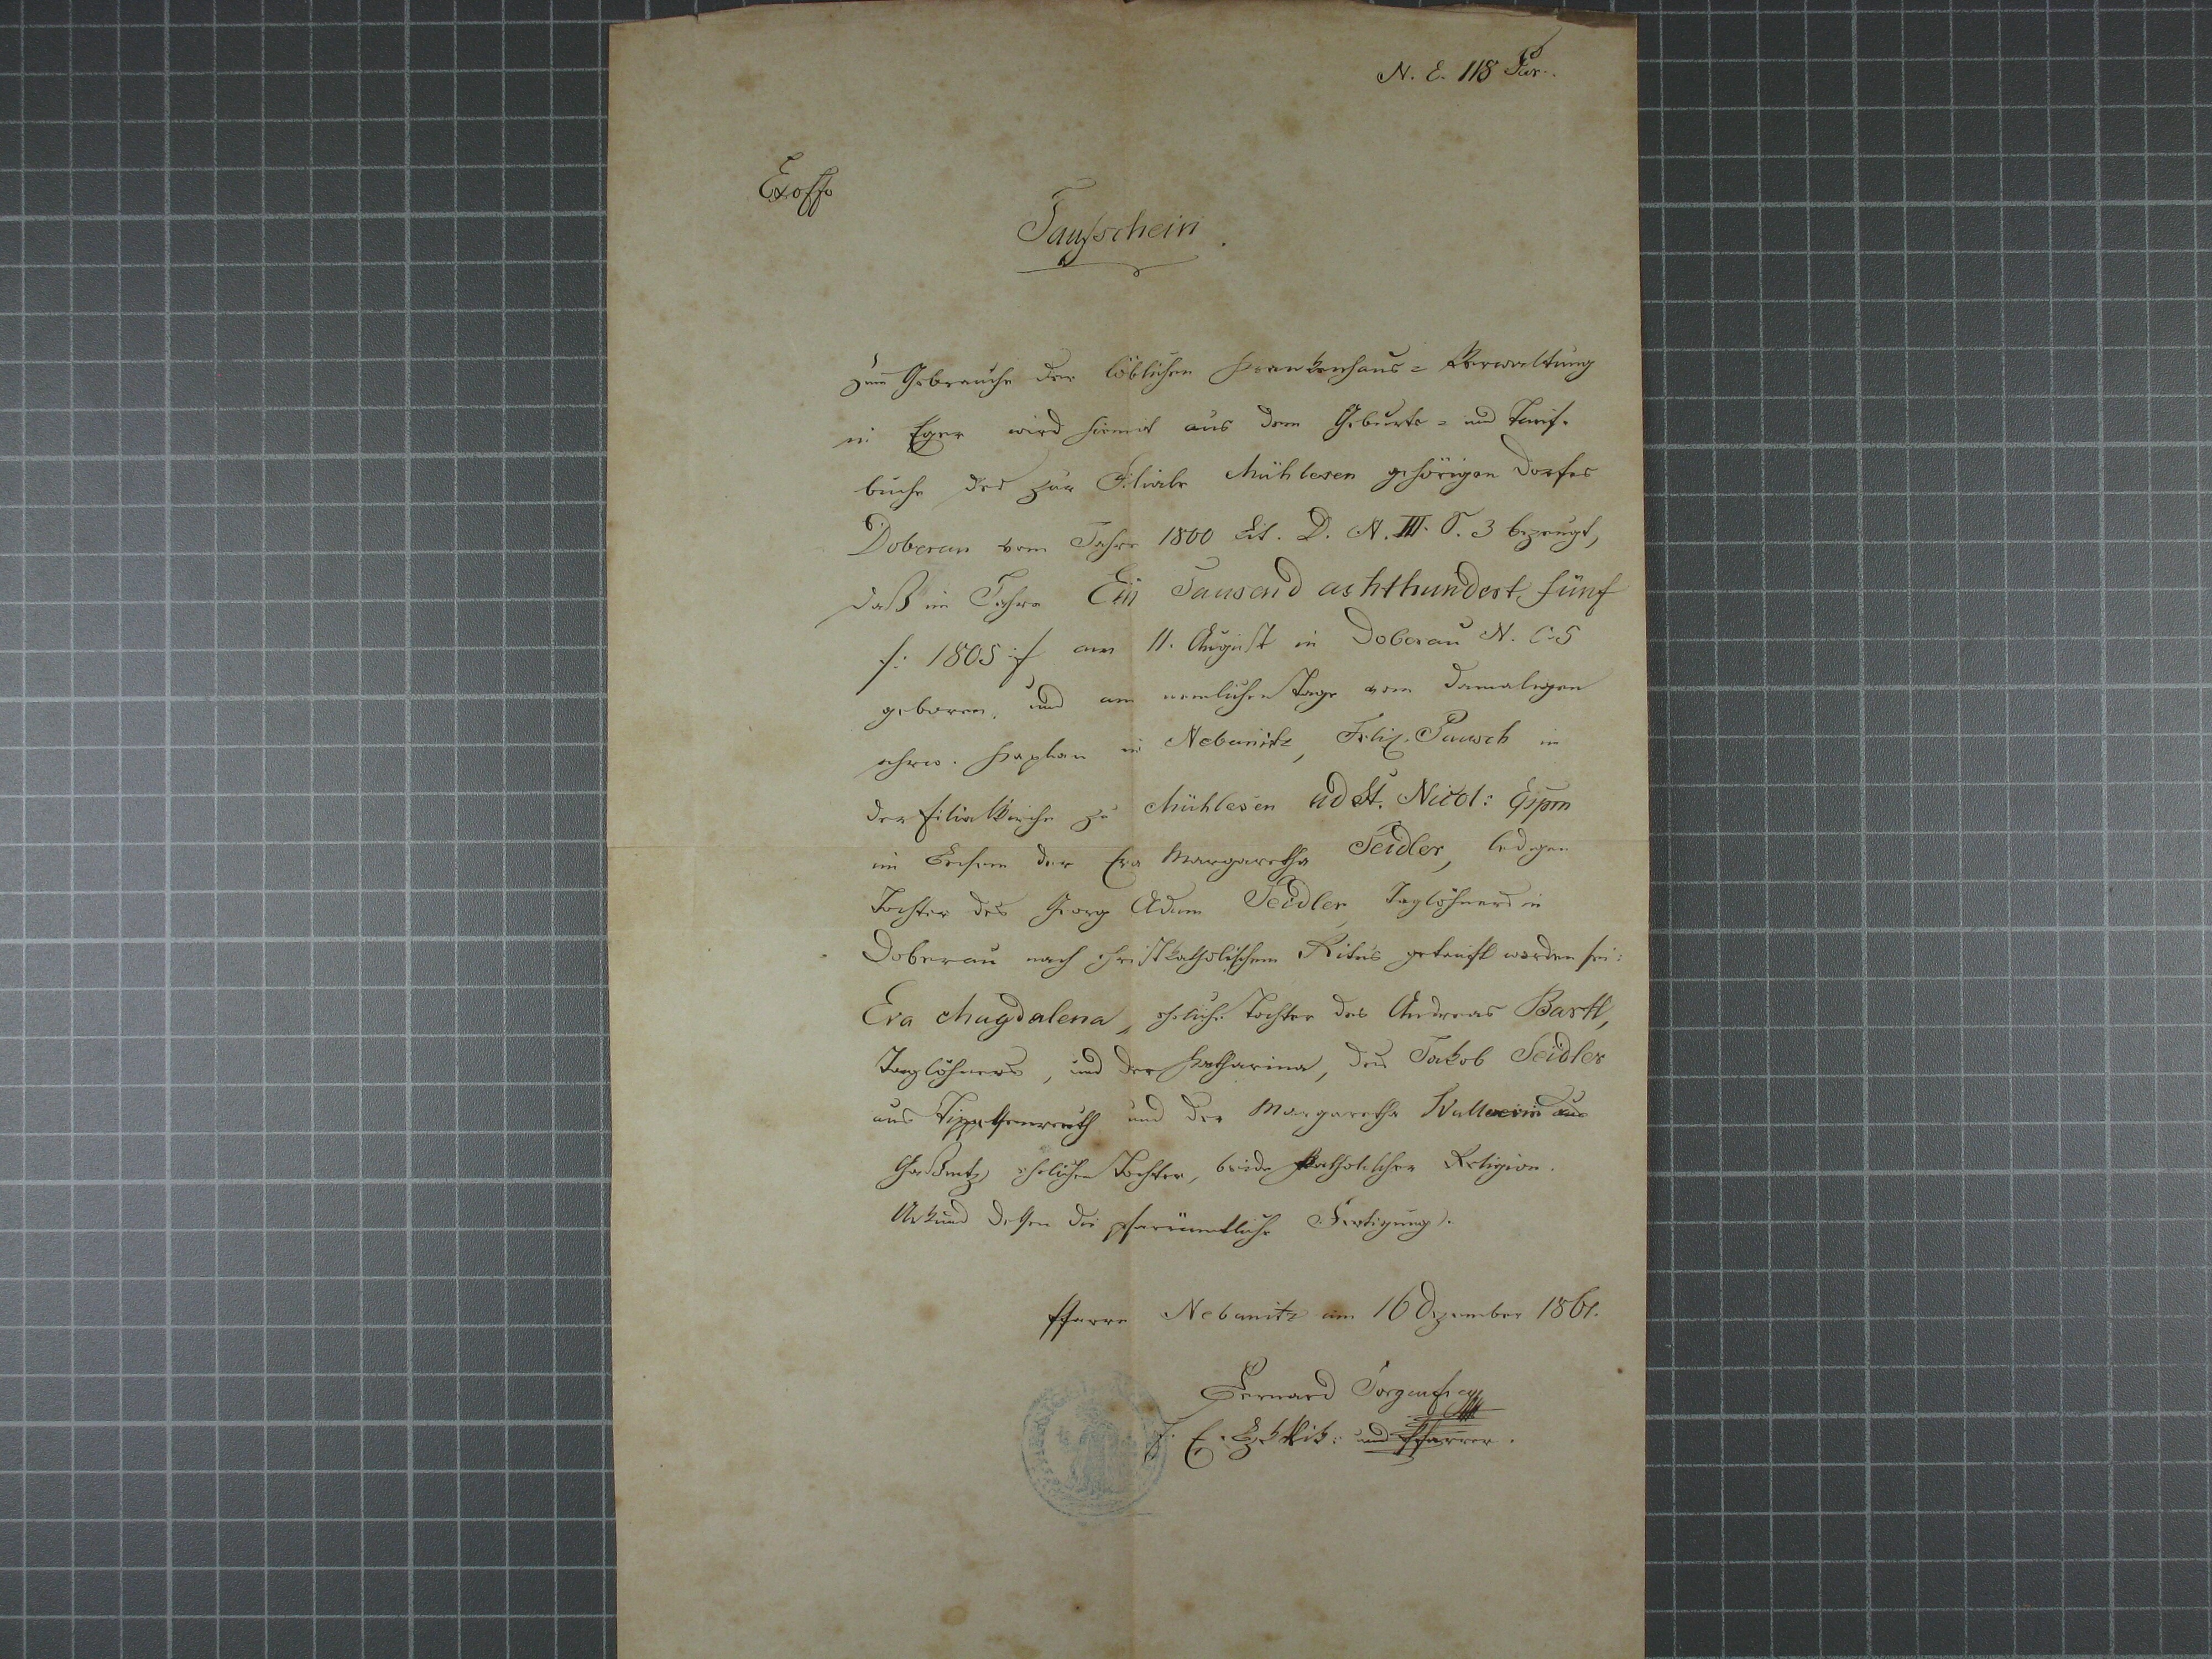 N. E. 118 Par.
Exoffo
Taufschein.
Zum Gebrauche der löblichen Krankenhaus=Verwaltung
in Eger wird hiemit aus dem Geburts= und Tauf-
buche des zur Filiale Mühlesen gehörigen Dorfes
Doberau vom Jahre 1800 Lit. D. N. III. F. 3 bezeugt,
daß im Jahre Ein Tausend achthundert fünf
/: 1805 :/ am 11. August in Doberau N. C. 5
geboren, und am nemlichen Tage vom damaligen
ehrw. Kaplan in Nebanitz, Felix Pausch in
der Filialkirche zu Mühlesen ad St. Nicol: Eppm
im Beisein der Eva Margaretha Seidler, ledigen
Tochter des Georg Adam Seidler, Taglöhners in
Doberau nach christkatholischem Ritus getauft worden sei:
Eva Magdalena, eheliche Tochter des Andreas Bartl,
Taglöhners, und der Katharina, des Jakob Seidler
aus Tippessenreuth und der Margaretha aus
ehelichen Tochter, beide katholischer Religion.
Urkund dessen die pfarrämtliche Fertigung.
Pfarre Nebanitz am 16 Dezember 1861.
Bernard
und Pfarrer.